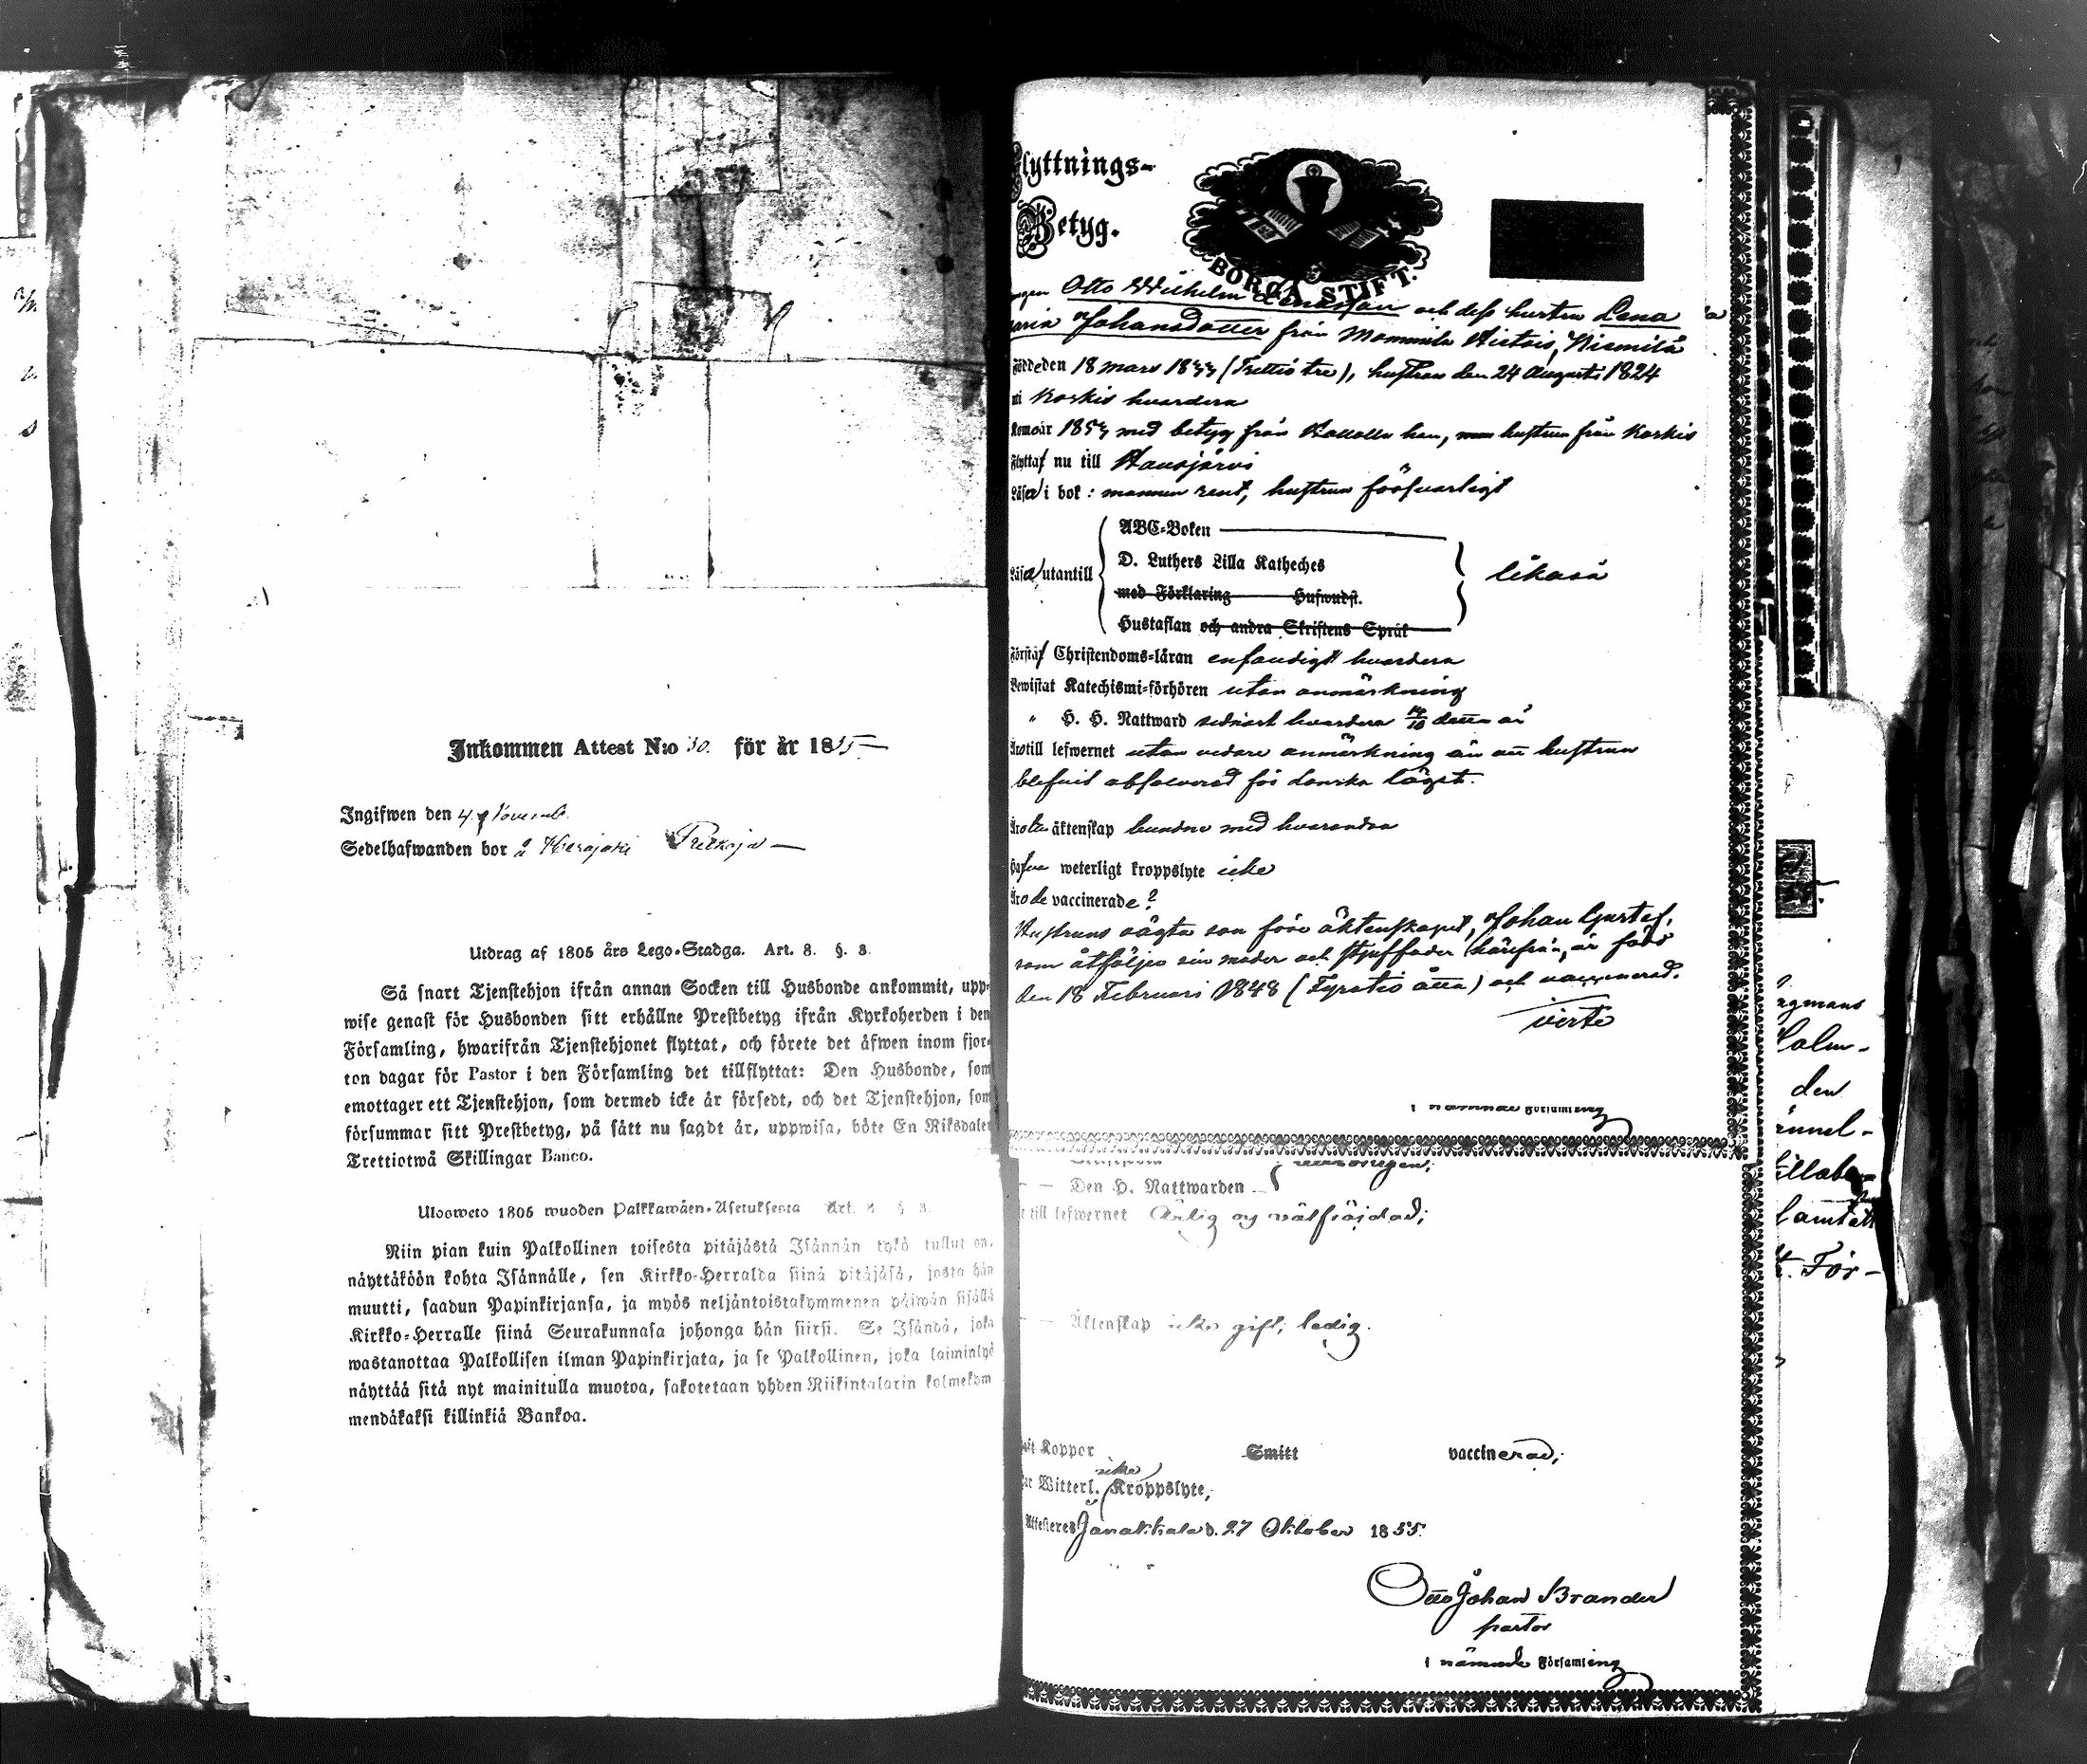 Inkommen Attest N:o 30. för år 1855
Ingifwen den 4. Novemb.
Sedelhafwanden bor å
Utdrag af 1805 års Lego-Stadga. Art. 8. §. 3.
Så snart Tjenstehjon ifrån annan Socken till Husbonde ankommit, upp-
wise genast för Husbonden sitt erhållne Prestbetyg ifrån Kyrkoherden i den
Församling, hwarifrån Tjenstehjonet flyttat, och förete det äfwen inom fjor-
ton dagar för Pastor i den Församling det tillflyttat: Den Husbonde, som
emottager ett Tjenstehjon, som dermed icke är försedt, och det Tjenstehjon, som
försummar sitt Prestbetyg, på sätt nu sagdt är, uppwisa, böte En Riksdaler
Trettiotwå Skillingar Banco.
Ulosweto 1805 wuoden Palkkawäen-Asetuksesta Art. 8 § 3.
Niin pian kuin Palkollinen toisesta pitäjästä Isännän tykö tullut on,
näyttäköön kohta Isännälle, sen Kirkko-Herralda siinä pitäjäsä, josta hän
muutti, saadun Papinkirjansa, ja myös neljäntoistakymmenen päiwän sisällä
Kirkko-Herralle siinä Seurakunnasa johonga hän siirsi. Se Isändä, joka
wastanottaa Palkollisen ilman Papinkirjata, ja se Palkollinen, joka laiminlyö
näyttää sitä nyt mainitulla muotoa, sakotetaan yhden Riikintalarin kolmekym
mendäkaksi killinkiä Bankoa.
lyttnings-
Betyg.
BORGÅ STIFT.
Otto Wilhelm och dess hustru Lena
Johansdotter från Mommila
Födde den 18 mars 1833 (Trettio tre), hustrun den 24 Augusti 1824
i Koskis hvardera
Kom år 1853 med betyg från Hollola han, hustrun från Koskis
Flytta nu till Hausjärvi
Läser i bok: mannen rent, hustrun försvarligt
Läser utantill
ABC-Boken
D. Luthers Lilla Katheches
med Förklaring Hufwudst.
Hustaflan och andra Skriftens Språk
likaså
Förstå Christendoms-läran enfaldigt hvardera
Bewistat Katechismi-förhören utan anmärkning
" H. H. Nattward sednast hvardera 14/10 detta år
Äro till lefwernet utan vidare anmärkning än att hustrun
blifvit absolverad för lönska läget.
Äro äktenskap bundne med hvarandra
Hafva weterligt kroppslyte icke
Äro de vaccinerade?
Hustruns oägta son före äktenskapet, Johan Gustaf,
som åtföljer sin moder och styffader härifrån, är född
den 18 Februari 1848 (Fyratio åtta) och vaccinerad.
verte
i nämnde Församling
Den H. Nattwarden
till lefwernet Ärlig og välfräjdad;
Äktenskap icke gift, ledig.
Koppor Smitt vaccinerad;
icke
Witterl. Kroppslyte;
Attesteres Janakkala d. 27 Oktober 1855.
Otto Johan Brander
pastor
i nämnde Församling
Holm-
den
För-